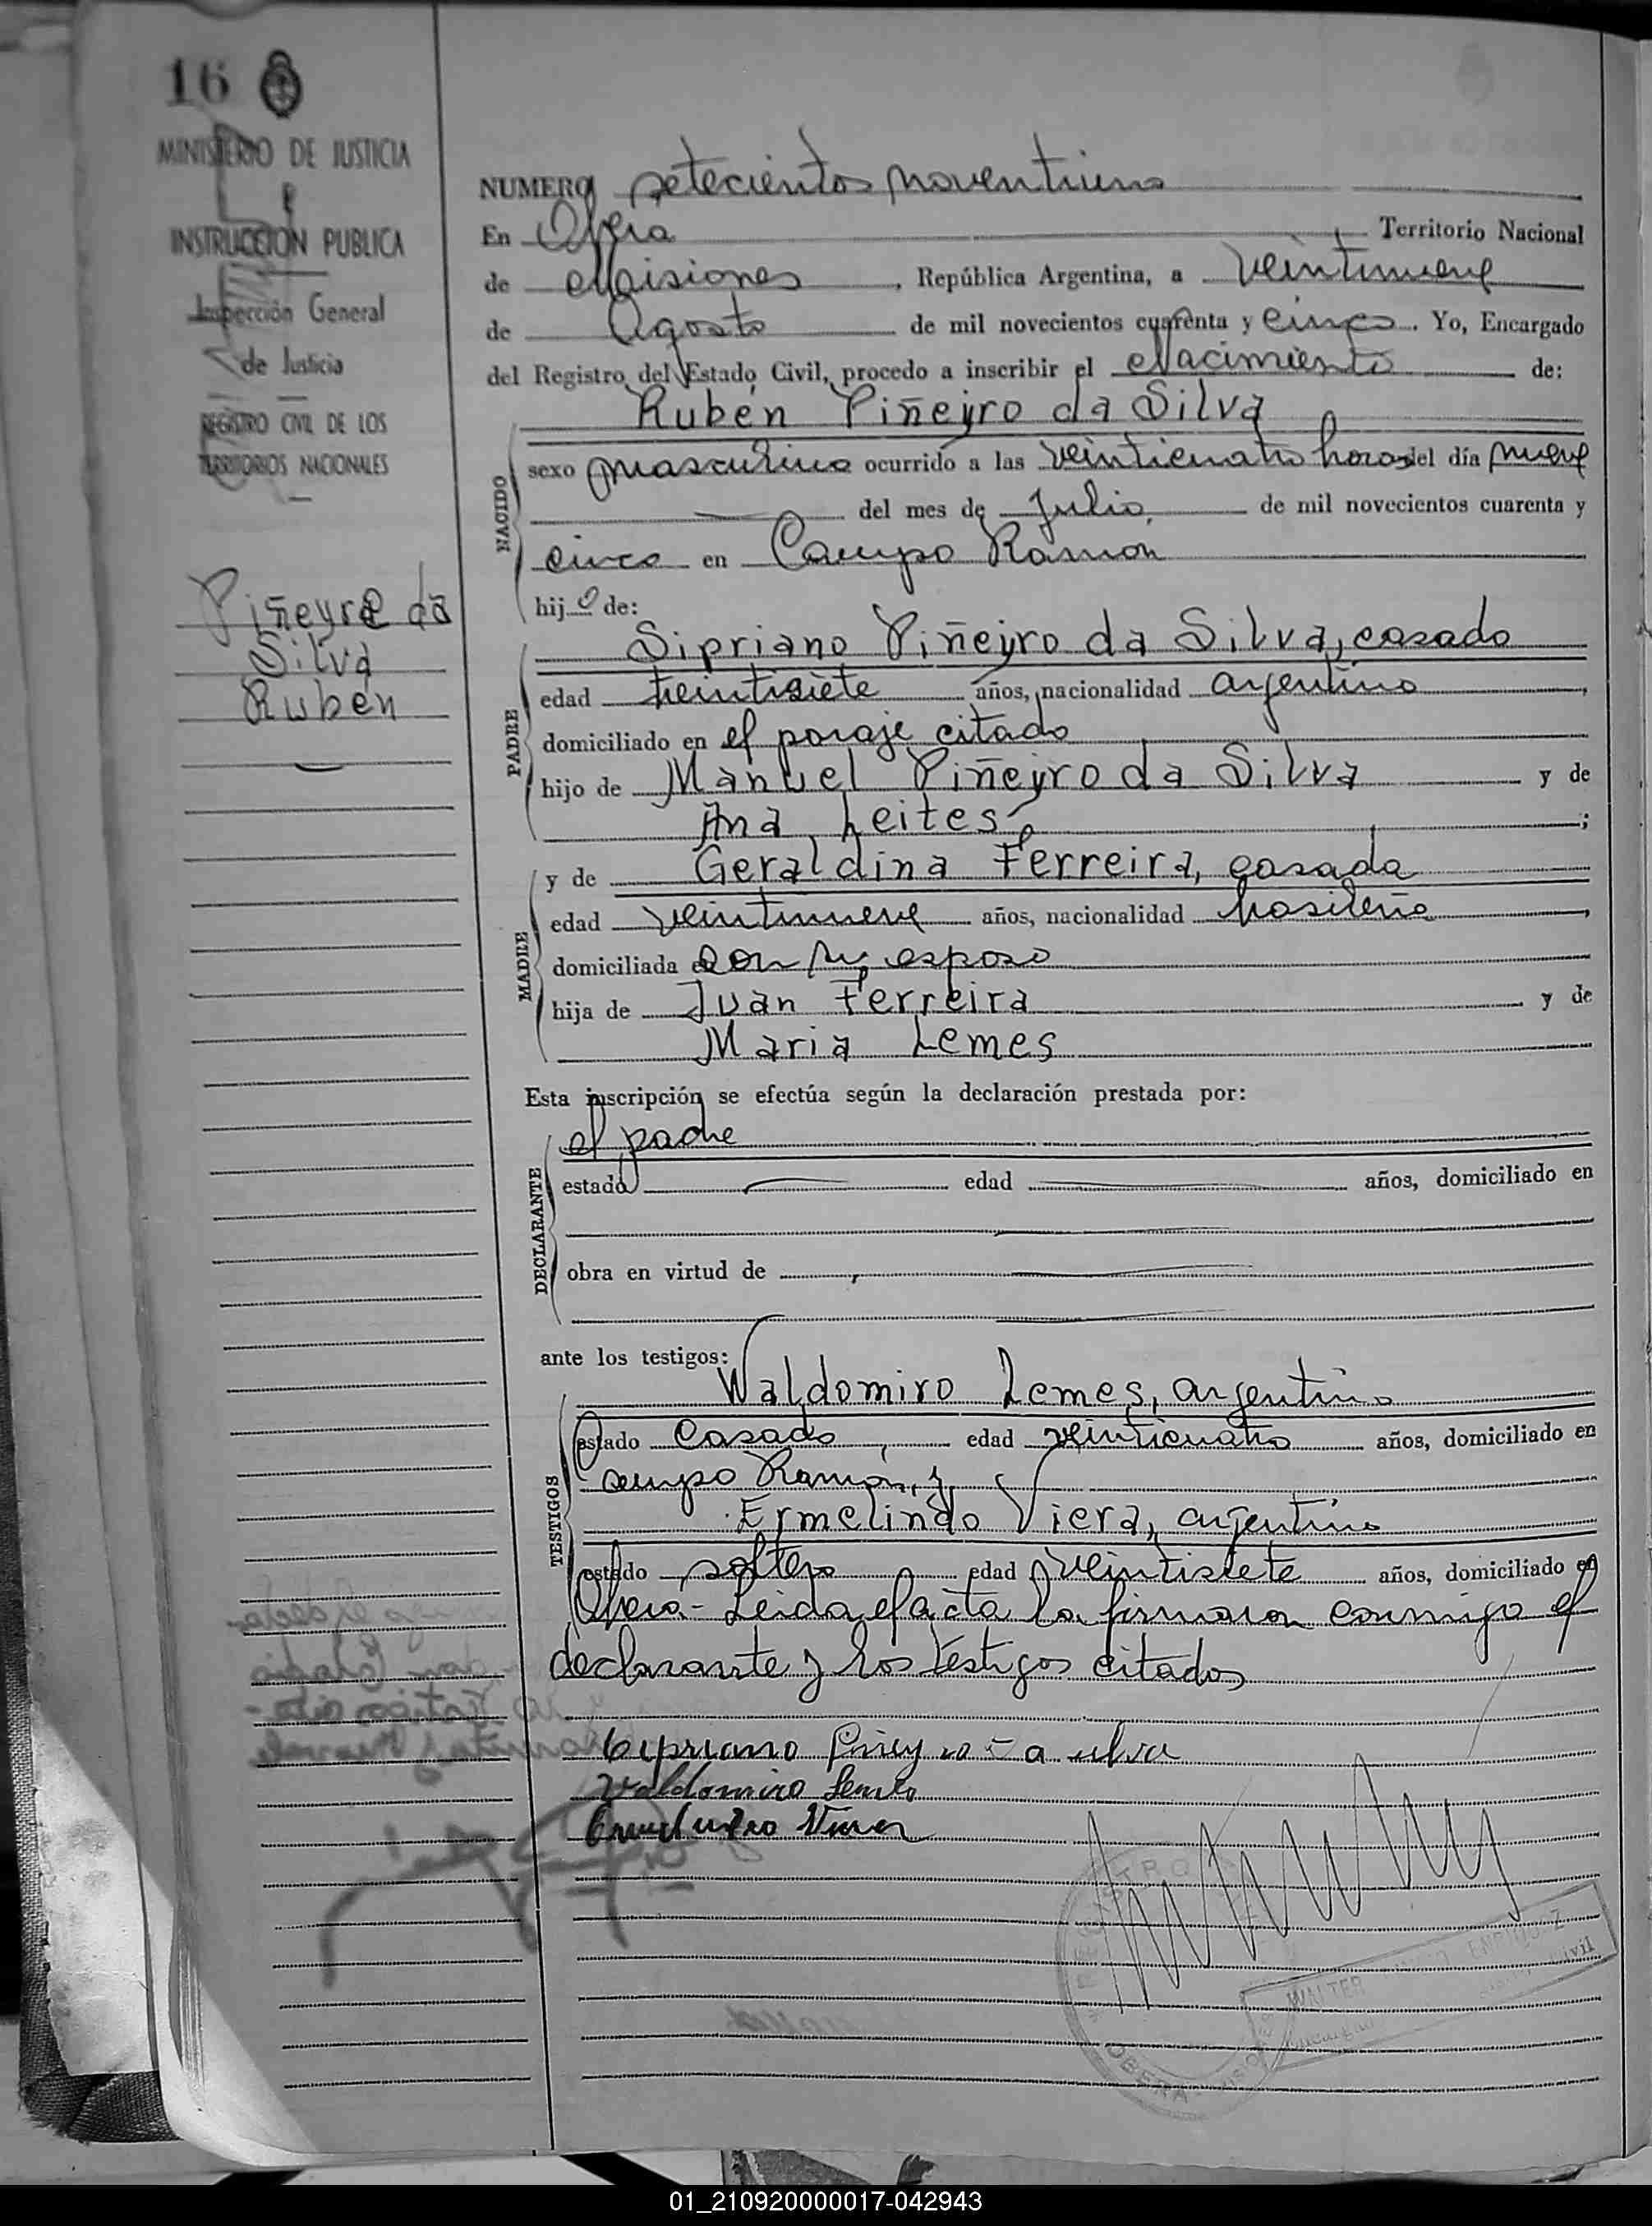 16
MINISTERIO DE JUSTICIA
INSTRUCCION PUBLICA
Inspección General
de Justicia
REGISTRO CIVIL DE LOS
TERRITORIOS NACIONALES
Piñeyro da
Silva
Rubén
NUMERO setecientos noventiuno
En Oberá Territorio Nacional
de Misiones, República Argentina, a veintinueve
de Agosto de mil novecientos cuarenta y cinco. Yo, Encargado
del Registro del Estado Civil, procedo a inscribir el Nacimiento de:
Rubén Piñeyro da Silva
NACIDO
sexo masculino ocurrido a las veinticuatro horas del día nueve
del mes de Julio, de mil novecientos cuarenta y
cinco en Campo Ramon
hijo de:
Sipriano Piñeyro da Silva, casado
PADRE
edad treintisiete años, nacionalidad argentino
domiciliado en el paraje citado
hijo de Manuel Piñeyro da Silva y de
Ana Leites ;
y de Geraldina Ferreira, casada
MADRE
edad veintinueve años, nacionalidad brasileña
domiciliada con su esposo
hija de Juan Ferreira y de
Maria Lemes
Esta inscripción se efectúa según la declaración prestada por:
el padre
DECLARANTE
estado edad años, domiciliado en
obra en virtud de
ante los testigos:
Waldomiro Lemes, argentino
TESTIGOS
estado Casado, edad veinticuatro años, domiciliado en
Campo Ramón, y
Ermelindo Viera, argentino
estado soltero edad veintisiete años, domiciliado en
Oberá.- Leida el acta la firmaron conmigo el
declarante y los testigos citados
Cipriano Piney ro - a silva
Valdomiro Lemes
Viera
REGISTRO
OBERA
WALTER ENRIQUEZ
Encargado Civil
01_210920000017-042943